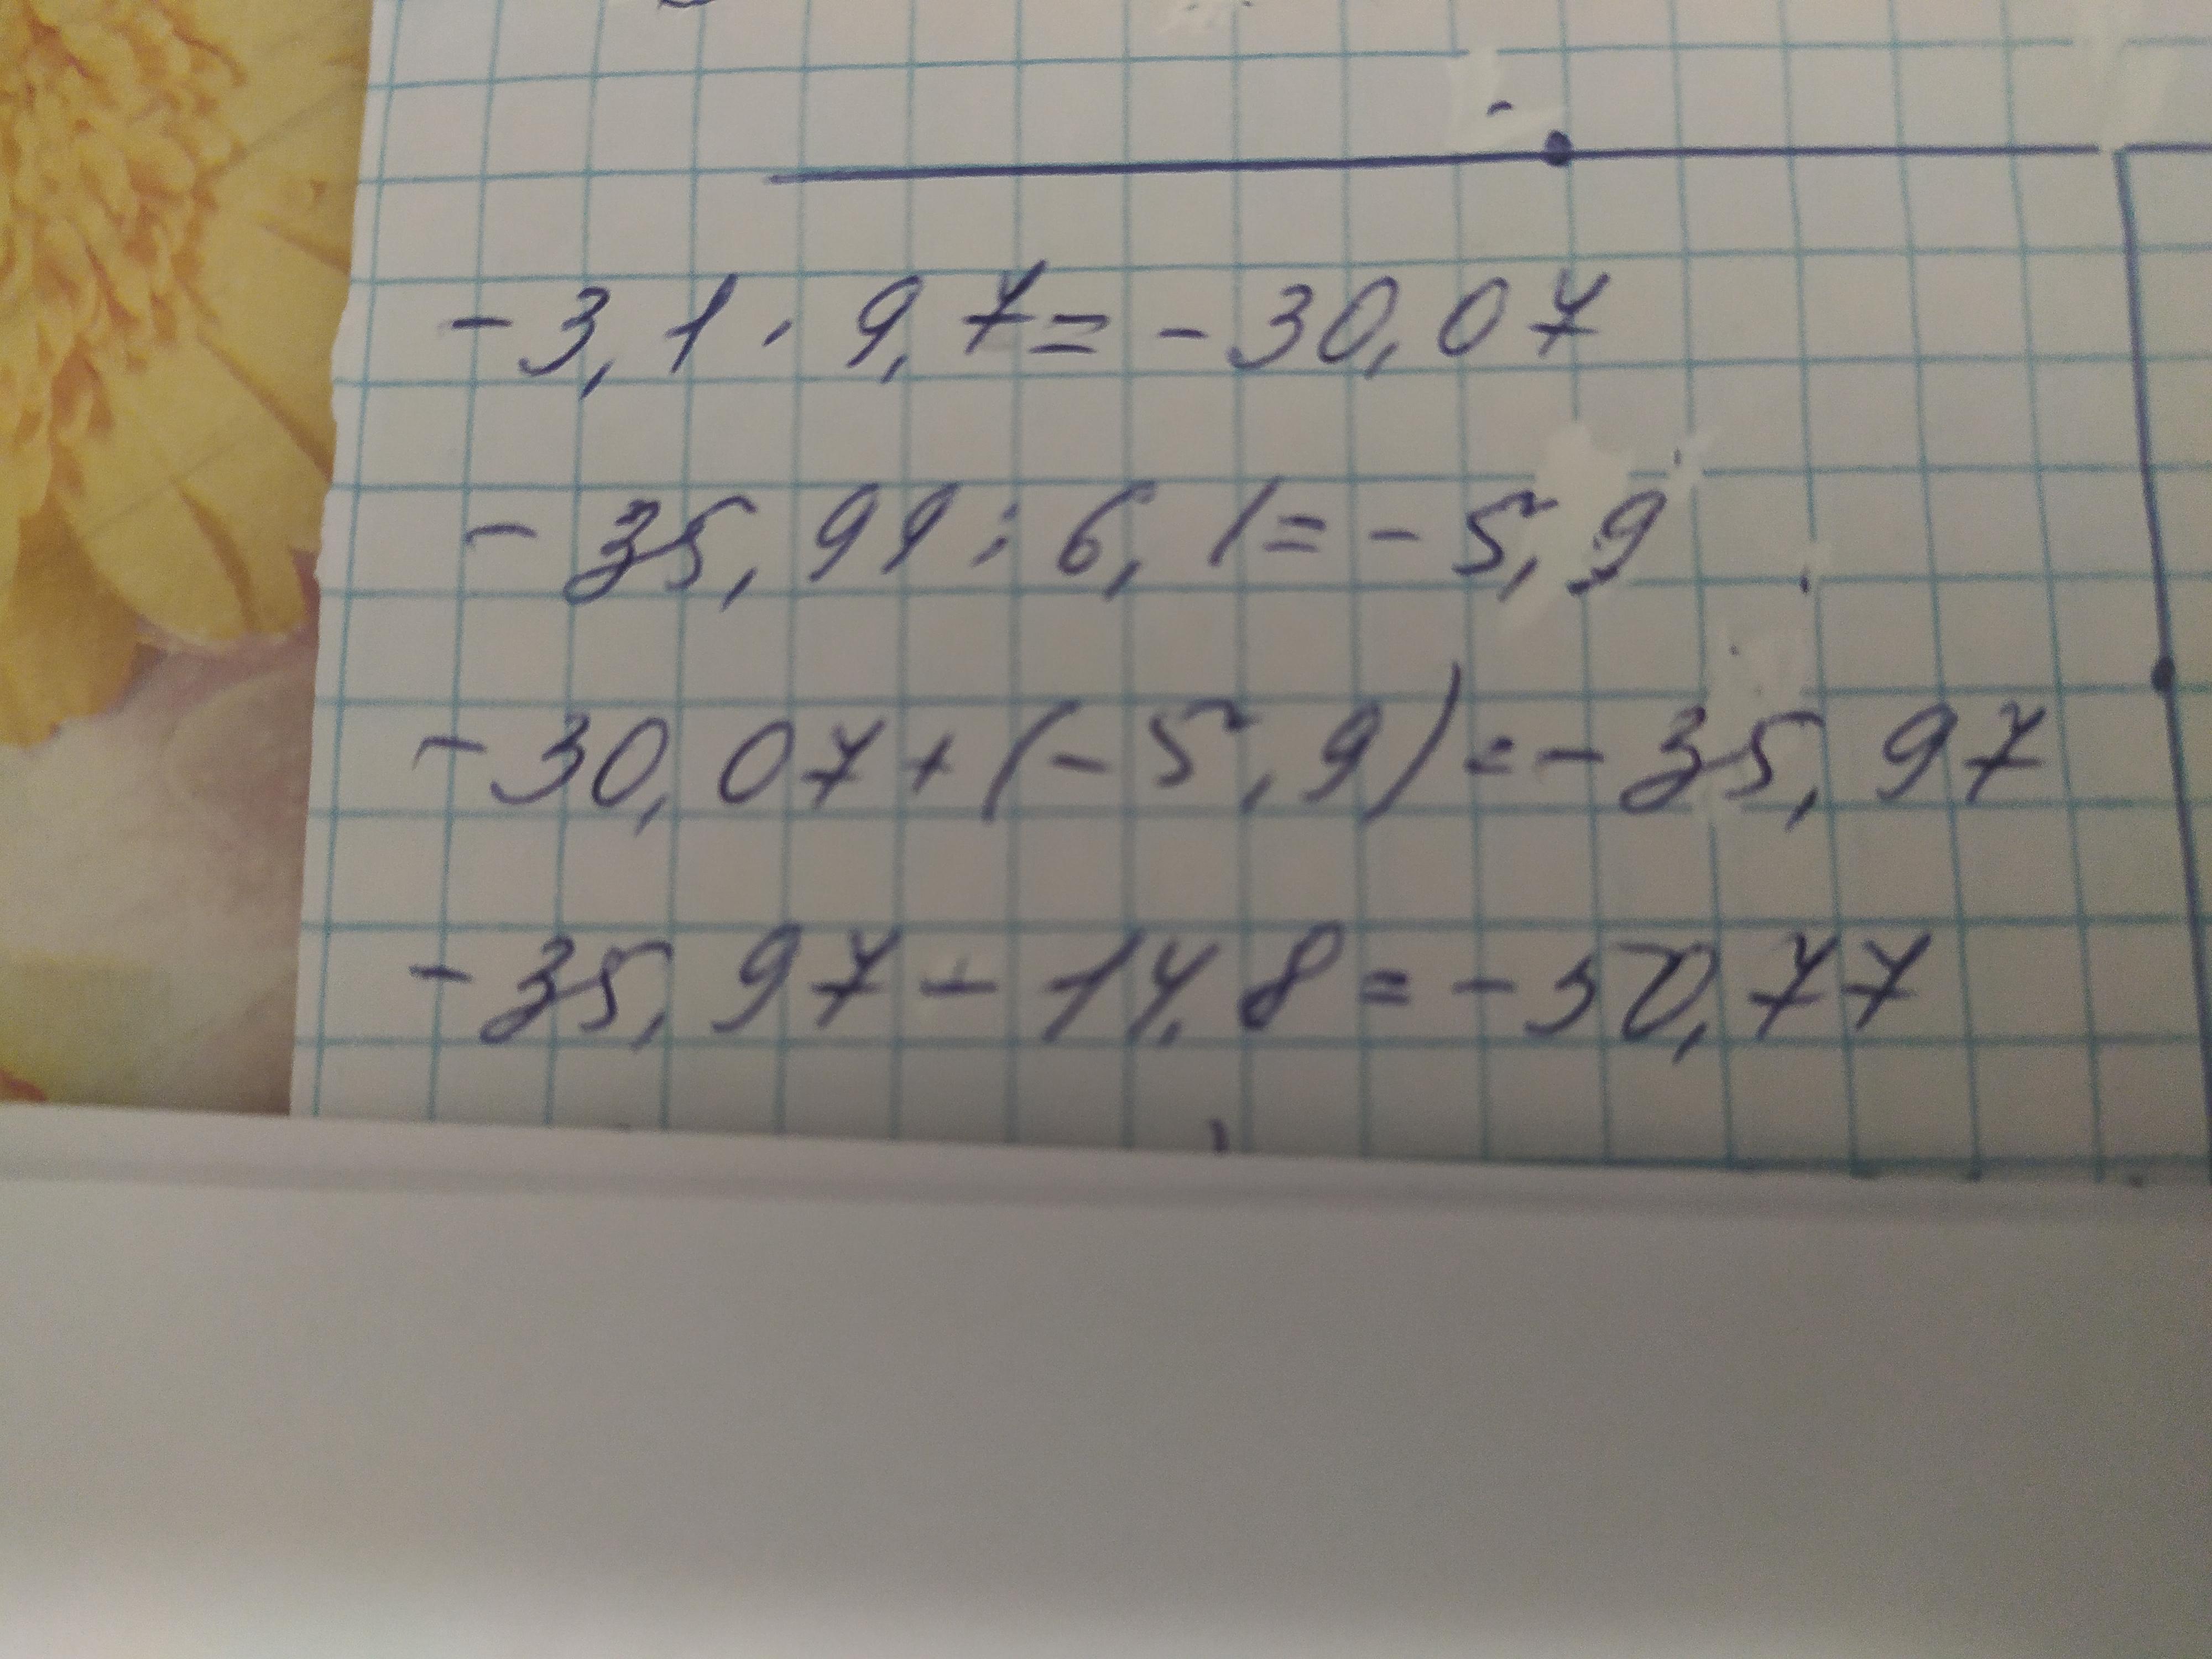 -3,1 · 9,7 = -30,07
-35,99 : 6,1 = -5,9
-30,07 + (-5,9) = -35,97
-35,97 - 14,8 = -50,77